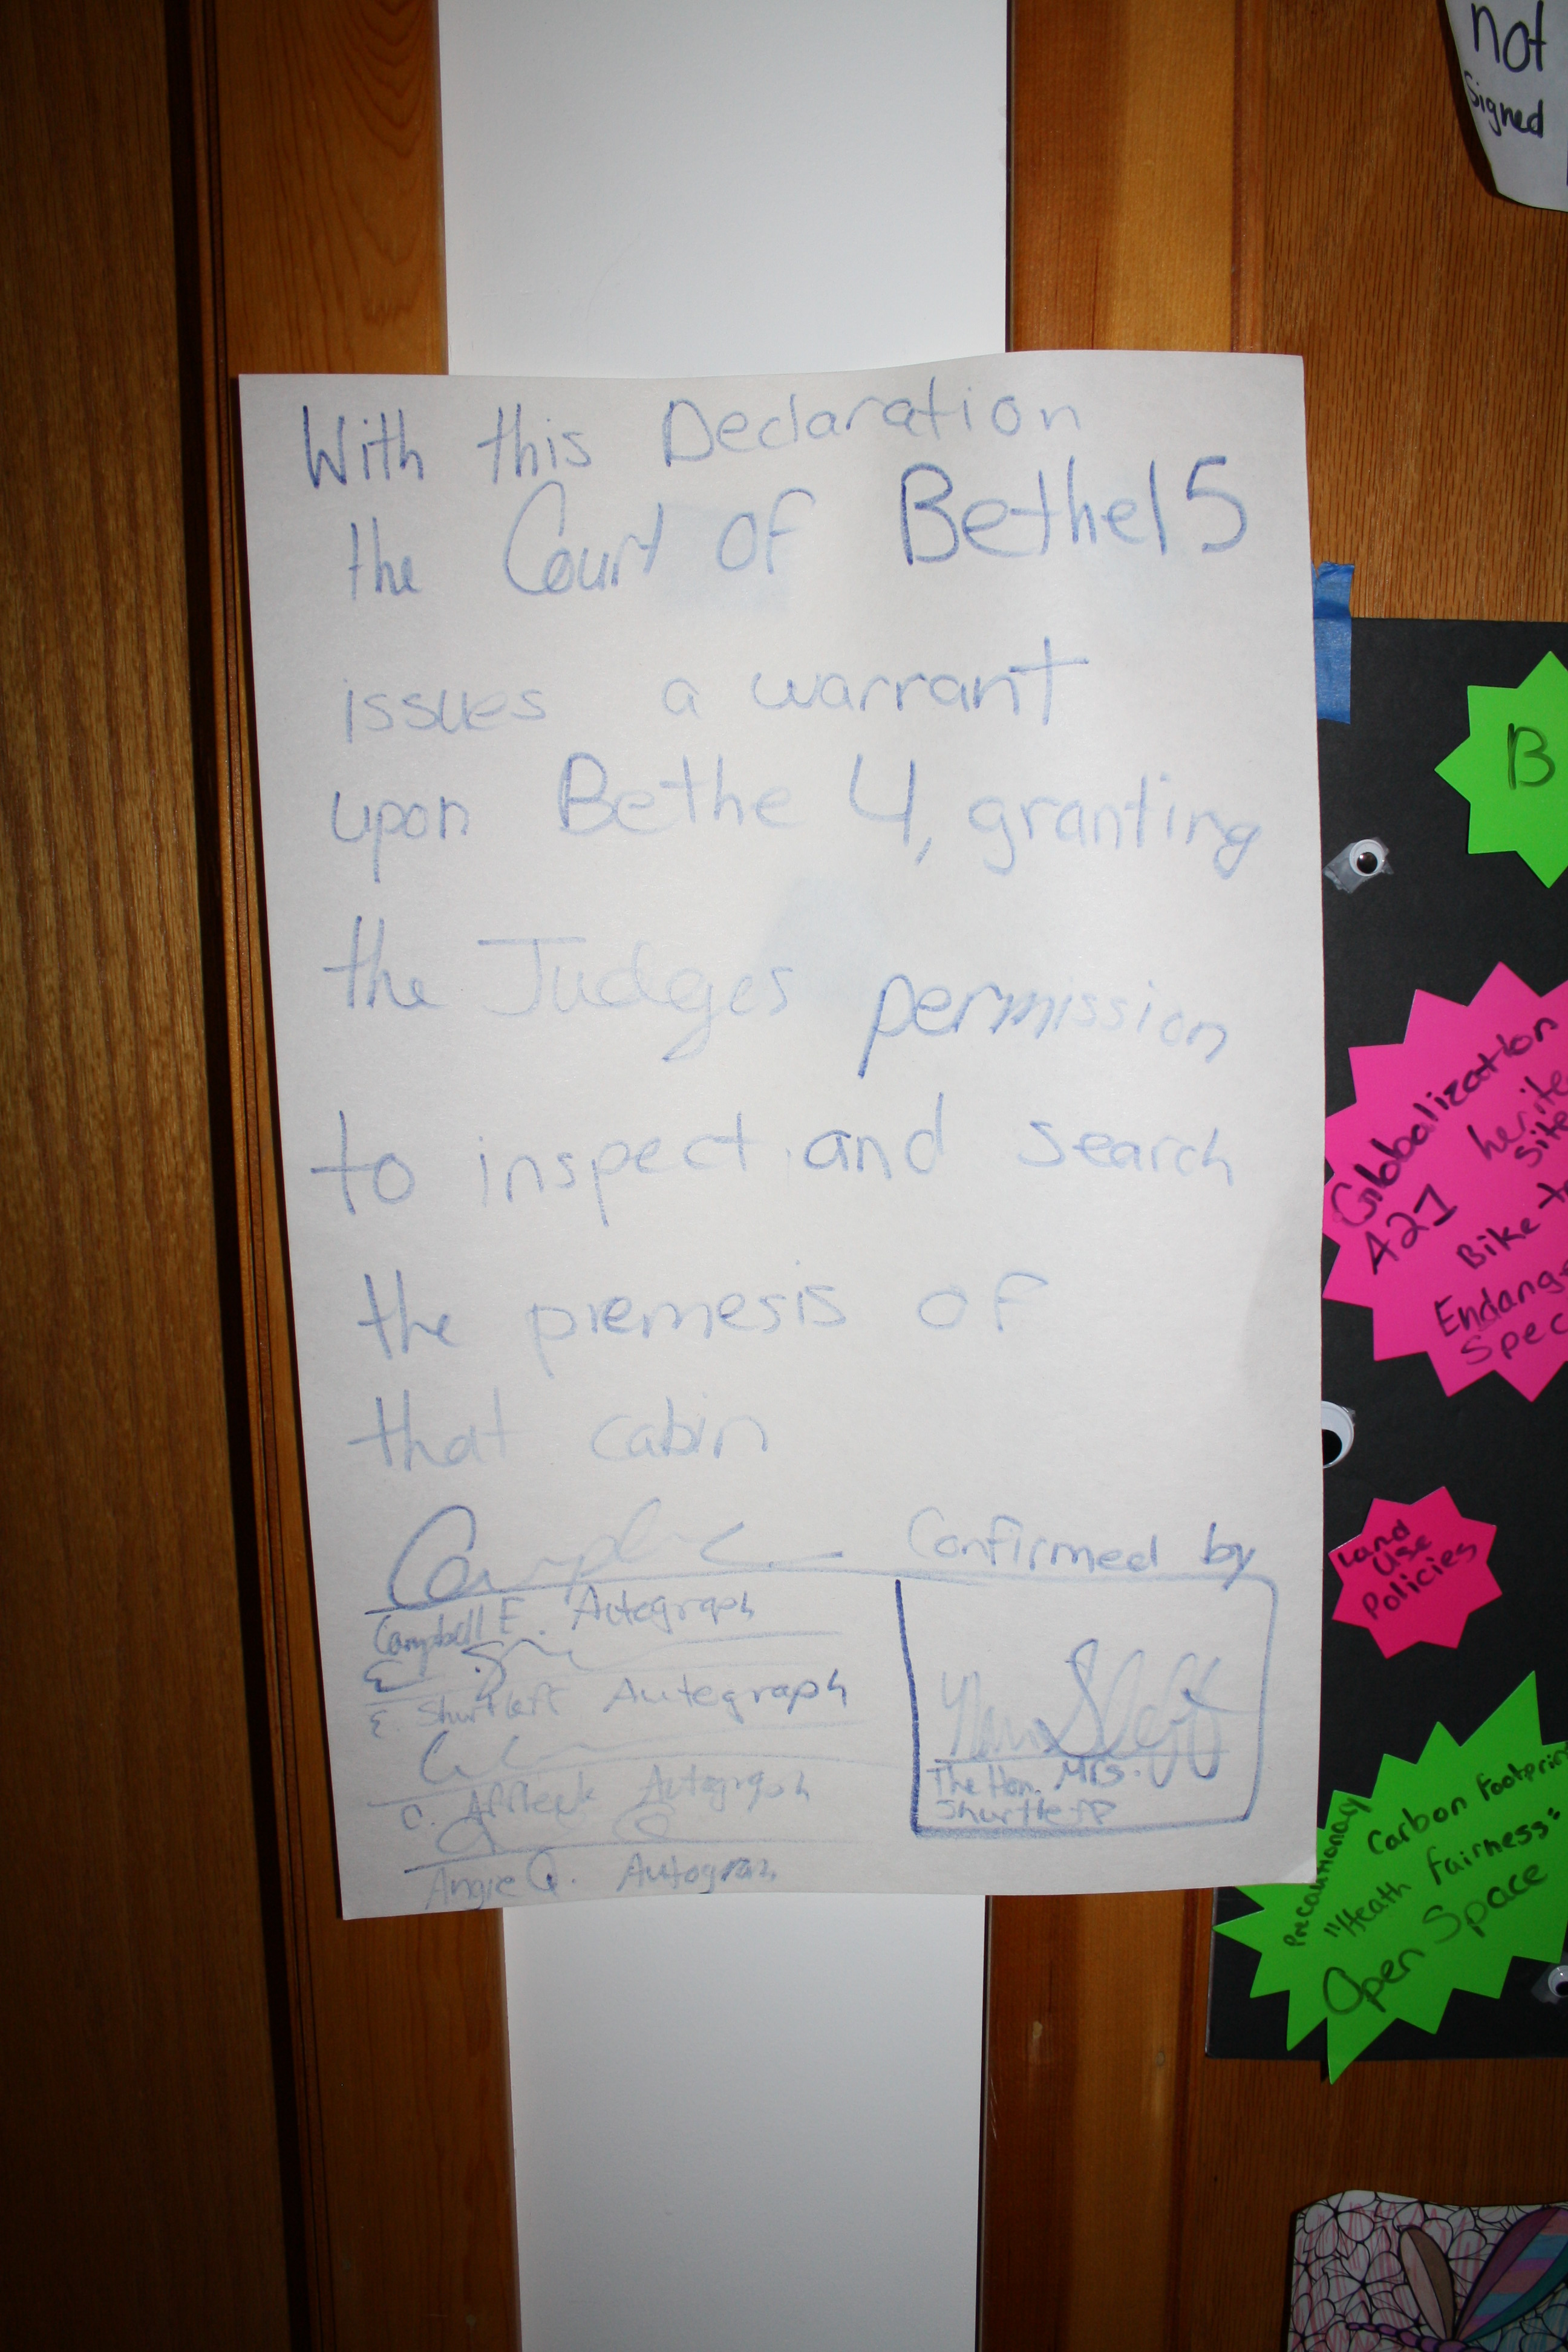 not
signed
With this Declaration
the Court of Bethel 5
issues a warrant
upon Bethe 4, granting
the Judges permission
to inspect and search
the premesis of
that cabin
Confirmed by
Campbell E. Autograph
E. Shurtleff Autegraph
C. Affleck Autograph
Angie Q. Autograph
The Hon. Mrs.
Shurtleff
B
Globalization
A21
Bike
Land
Use
Policies
Precautionary
Carbon Footprin
"Heath fairness=
Open Space